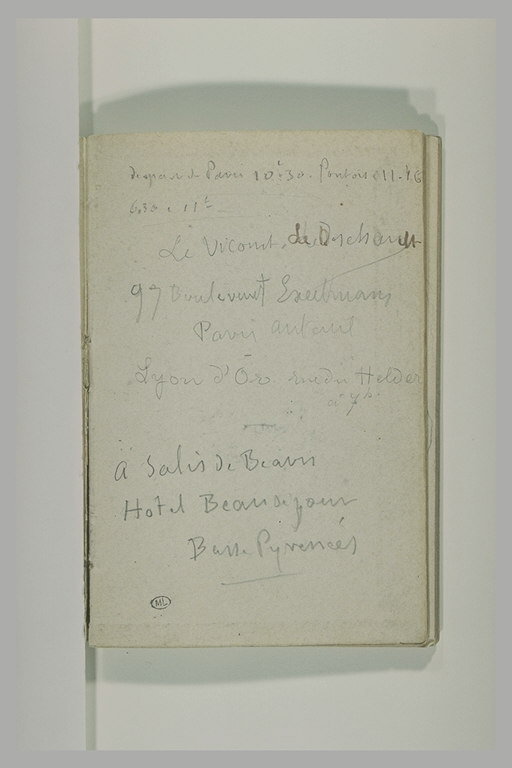 depart de Paris 10h30. Pontoise 11-46
6.30 à 11h
Le Vicomte de
97 Boulevard Exelmans
Paris auteuil
Lyon d'Or rue du Helder
à 7h.
à Salis de Bearn
Hotel Beausejour
Basse Pyrenées
ML